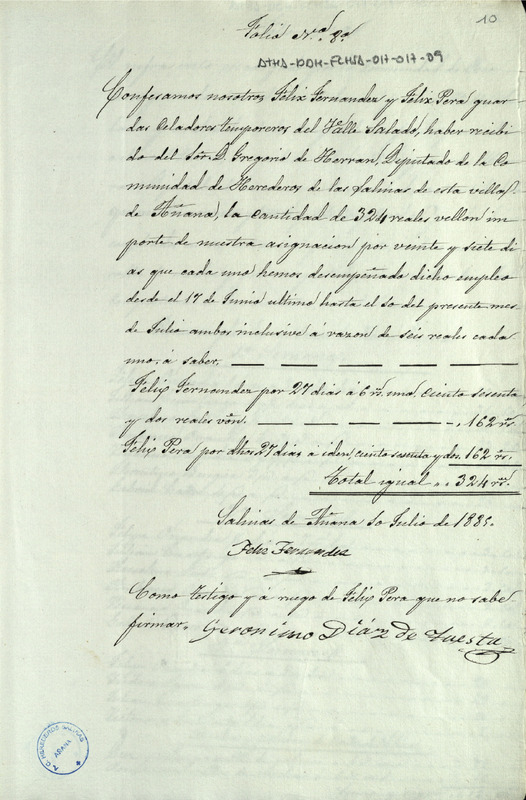 10
Folio N.º 8º
ATHA-DDH-FCHSA-017-017-09
Confesamos nosotros Felix Fernandez y Felix Pera guar
das Celadores temporeros del Valle Salado, haber recibi
do del Sor. D. Gregorio de Herran, Diputado de la Co
munidad de Herederos de las Salinas de esta villa
de Añana, la cantidad de 324 reales vellon im
porte de nuestra asignacion por veinte y siete di
as que cada uno hemos desempeñado dicho empleo
desde el 17 de Junio ultimo hasta el 10 del presente mes
de Julio ambos inclusive á razon de seis reales cada
uno, á saber,
Felix Fernandez por 27 dias á 6 rs. uno, ciento sesenta
y dos reales von. 162 rs
Felix Pera por dhos 27 dias á iden, ciento sesenta y dos. 162 rs.
Total igual 324 rs.
Salinas de Añana 10 Julio de 1885.
Felix Fernandez
Como testigo y á ruego de Felix Pera que no sabe
firmar. Geronimo Diaz de Tuesta
A.C. HEREDEROS SALINAS
AÑANA